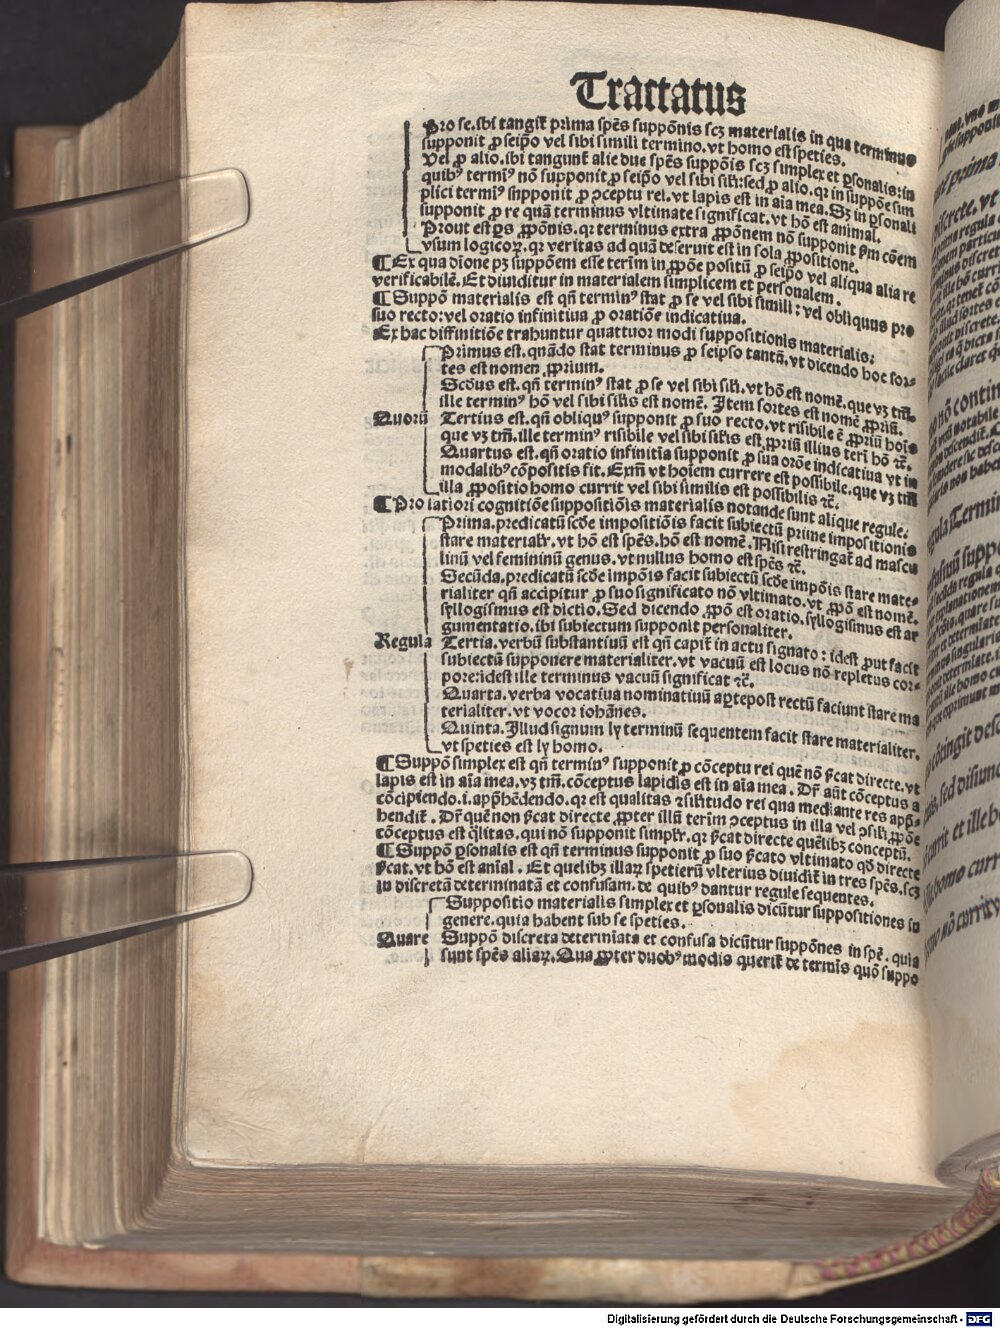 Tractatus
Pro se.ibi tangit᷑ prima spēs suppōnis scꝫ materialis in qua terminus
supponit ꝓ seip̄o vel sibi simili termino.vt homo est species.
Vel ꝓ alio.ibi tangunt᷑ alie due spēs suppōis scꝫ simplex et ꝑsonalis:in
quibꝰ termiꝰ nō supponit ꝓ seip̄o vel sibi sil̄i:sed ꝓ alio.qꝛ in suppōe sim
plici termiꝰ supponit ꝓ ꝯceptu rei.vt lapis est in aīa mea.Sꝫ in ꝑsonali
supponit ꝓ re quā terminus vltimate significat.vt hō est animal.
Prout est ꝑs ꝓpōnis.qꝛ terminus extra ꝓpōnem nō supponit ẜm cōem
vsum logicoꝝ.qꝛ veritas ad quā deseruit est in sola ꝓpositione.
¶ Ex qua diōne pꝫ suppōem esse term̄i in ꝓpōe positū ꝓ seip̄o vel aliqua alia re
verificabilē. Et diuiditur in materialem simplicem et personalem.
¶ Suppō materialis est qn̄ terminꝰ stat ꝓ se vel sibi simili : vel obliquus pro
suo recto:vel oratio infinitiua ꝓ oratiōe indicatiua.
Ex hac diffinitiōe trahuntur quattuor modi suppositionis materialis:
Primus est.quādo stat terminus ꝓ seipso tantū.vt dicendo hoc sor⸗
tes est nomen ꝓprium.
Scd̄us est.qn̄ terminꝰ stat ꝓ se vel sibi sil̄i.vt hō est nomē.que vꝫ tm̄.
ille terminꝰ hō vel sibi sil̄is est nomē. Item sortes est nomē ꝓpriū.
Quorū Tertius est.qn̄ obliquꝰ supponit ꝓ suo recto.vt risibile ē ꝓpriū hoīs
que vꝫ tm̄.ille terminꝰ risibile vel sibi sil̄is est ꝓpriū illius teri hō ⁊c̄.
Quartus est.qn̄ oratio infinitia supponit ꝓ sua orōe indicatiua vt in
modalibꝰ cōpositis fit. Exm̄ vt hoīem currere est possibile.que vꝫ tm̄
illa ꝓpositio homo currit vel sibi similis est possibilis ⁊c̄.
¶ Pro latiori cognitiōe suppositiōis materialis notande sunt alique regule:
Prima.predicatū scd̄e impositiōis facit subiectū prime impositionis
stare materialr̄.vt hō est spēs.hō est nomē. Nisi restringat᷑ ad mascu
linū vel femininū genus.vt nullus homo est spēs ⁊c̄.
Secūda.predicatū scd̄e impōis facit subiectū scd̄e impōis stare mate⸗
rialiter qn̄ accipitur ꝓ suo significato nō vltimato.vt ꝓpō est nomē.
syllogismus est dictio. Sed dicendo ꝓpō est oratio.syllogismus est ar
gumentatio.ibi subiectum supponit personaliter.
Regula Tertia.verbū substantiuū est qn̄ capit᷑ in actu signato : idest ꝓut facit
subiectū supponere materialiter.vt vacuū est locus nō repletus cor⸗
pore:idest ille terminus vacuū significat ⁊c̄.
Quarta.verba vocatiua nominatiuū aptepost rectū faciunt stare ma
terialiter.vt vocor iohānes.
Quinta. Illud signum ly terminū sequentem facit stare materialiter.
vt speties est ly homo.
¶ Suppō simplex est qn̄ terminꝰ supponit ꝓ cōceptu rei quē nō ẜcat directe.vt
lapis est in aīa mea.vꝫ tm̄.cōceptus lapidis est in aīa mea. Dr̄ aūt cōceptus a
cōcipiendo.i.app̄hēdendo.qꝛ est qualitas ⁊ sil̄itudo rei qua mediante res app̄⸗
hendit᷑. Dr̄ quē non ẜcat directe ꝓpter illū term̄i ꝯceptus in illa vel ꝯsil̄i ꝓpōe
cōceptus est q̄litas.qui nō supponit simplr̄.qꝛ ẜcat directe quēlibꝫ conceptū.
¶ Suppō ꝑsonalis est qn̄ terminus supponit ꝓ suo ẜcato vltimato qd̄ directe
ẜcat.vt hō est anīal . Et quelibꝫ illaꝝ spetierū vlterius diuidit᷑ in tres spēs.scꝫ
in discretā determinatā et confusam.de quibꝰ dantur regule sequentes.
Suppositio materialis simplex et ꝑsonalis dicūtur suppositiones in
genere.quia habent sub se speties.
Quare Suppō discreta determiata et confusa dicūtur suppōnes in spē . quia
sunt spēs aliaꝝ. Qua ꝓpter duobꝰ modis querit᷑ de termīs quō suppo
Digitalisierung gefördert durch die Deutsche Forschungsgemeinschaft - DFG